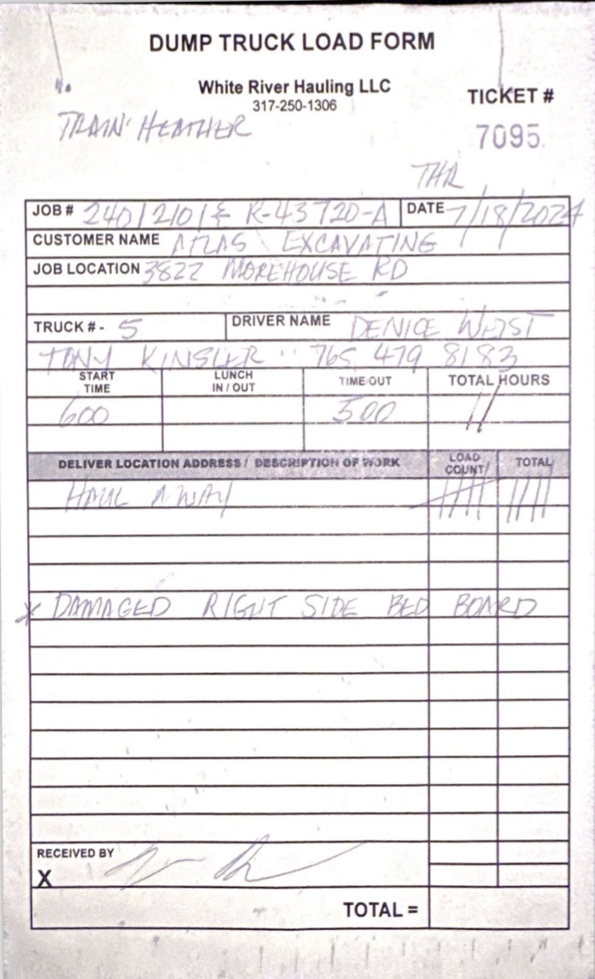 DUMP TRUCK LOAD FORM
White River Hauling LLC
317-250-1306
TICKET #
7095
TRAIN HEATHER
THR
JOB # 2401210/ R-43720-A DATE 7/18/2024
CUSTOMER NAME ATLAS EXCAVATING
JOB LOCATION 3822 MOREHOUSE RD
TRUCK # - 5 DRIVER NAME DENICE WEIST
TONY KINSLER 765 479 8183
START TIME LUNCH IN / OUT TIME OUT TOTAL HOURS
600 500 11
DELIVER LOCATION ADDRESS / DESCRIPTION OF WORK LOAD COUNT/ TOTAL
HAUL AWAY
* DAMAGED RIGHT SIDE BED BOARD
RECEIVED BY
X
TOTAL =